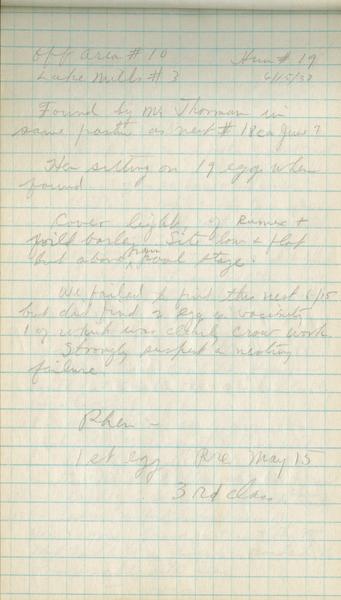 Off Area # 10 Hun # 19
Lake Mills # 3 6/15/38
Found by Mr Thorman in
same pasture as nest # 18 ca June 7
Hen sitting on 19 eggs when
found
Cover light of Rumex +
wild barley. Site low + flat
but above pool stage.
We failed to find this nest 6/15
but did find 2 egg in vacinity
1 of which was clearly crow work
Strongly suspect a nesting
failure
Phen -
1st egg Pre May 15
3rd class